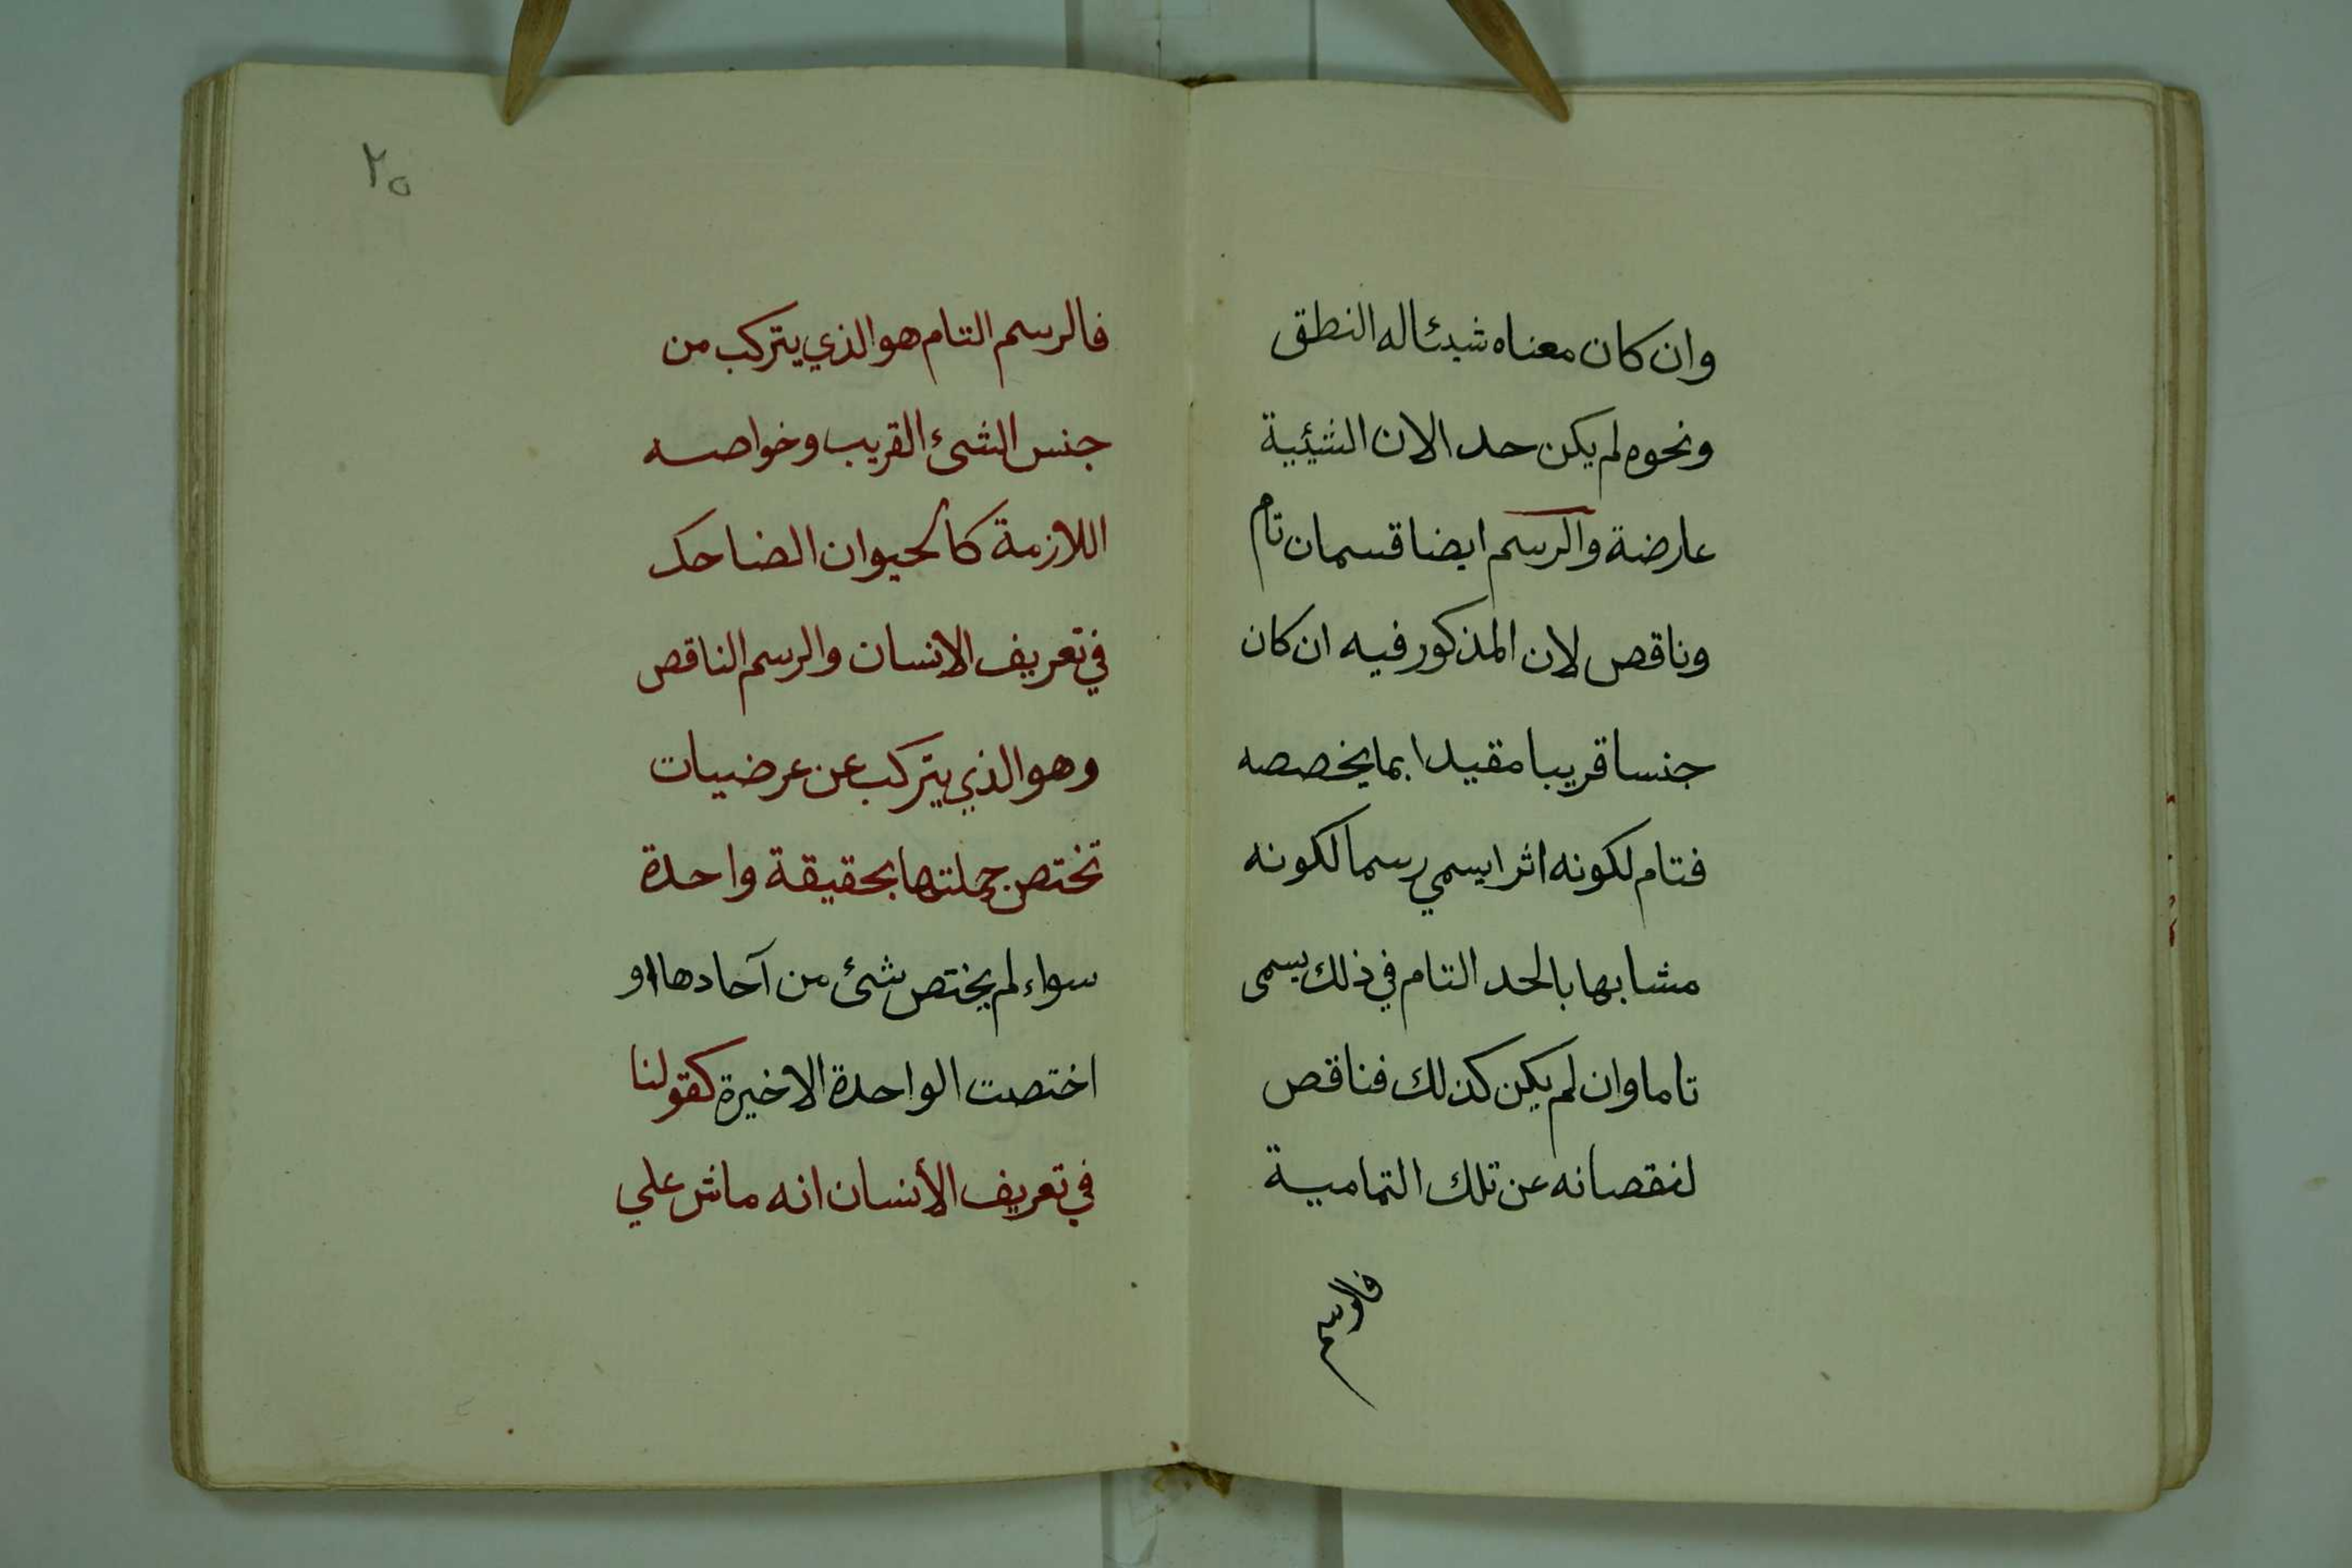 وان كان معناه شيئا له النطق
ونحوه لم يكن حدا لان الشيئية
عارضة والرسم ايضا قسمان تام
وناقص لان المذكور فيه ان كان
جنسا قريبا مقيدا بما يخصصه
فتام لكونه اثرا يسمي رسما لكونه
مشابها بالحد التام في ذلك يسمى
تاما وان لم يكن كذلك فناقص
لنقصانه عن تلك التمامية
فالرسم
٢٥
فالرسم التام هو الذي يتركب من
جنس الشئ القريب وخواصه
اللازمة كالحيوان الضاحك
في تعريف الانسان والرسم الناقص
وهو الذي يتركب عن عرضيات
تختص جملتها بحقيقة واحدة
سواء لم يختص شئ من آحادها او
اختصت الواحدة الاخيرة كقولنا
في تعريف الأنسان انه ماش علي